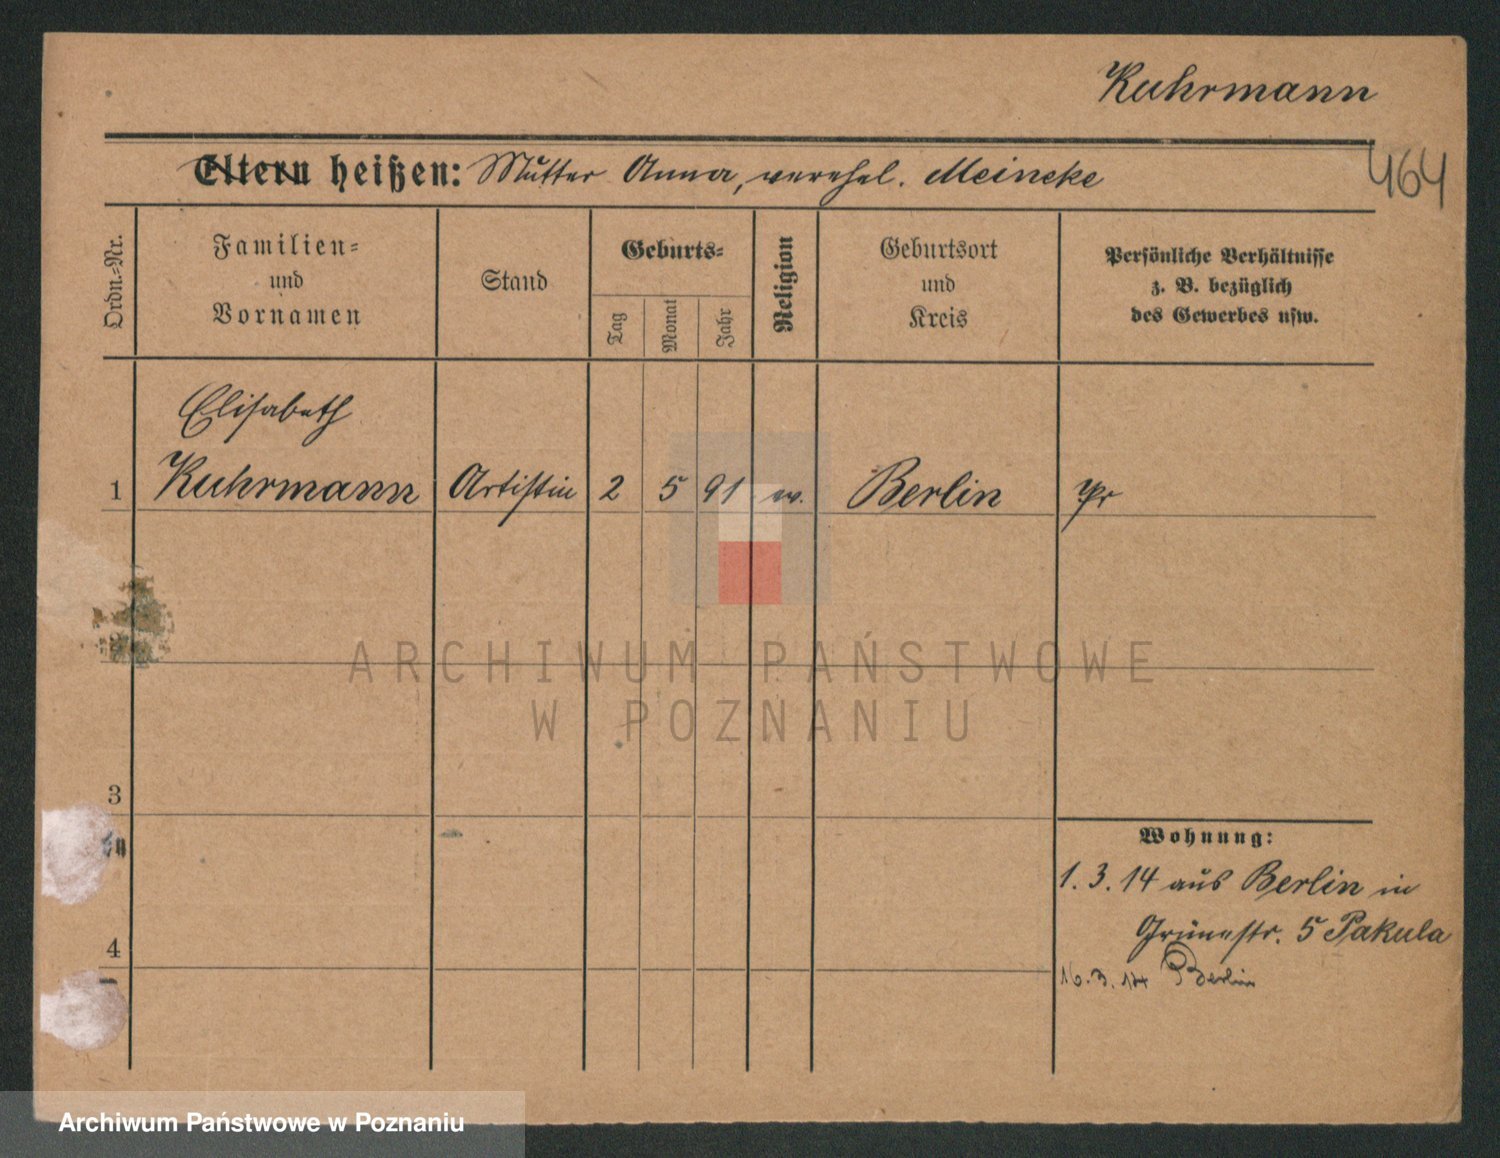 Kuhrmann
464
Eltern heißen: Mutter Anna, verehel. Meincke
Ordn.-Nr.
Familien-
und
Vornamen
Stand
Geburts-
Tag
Monat
Jahr
Religion
Geburtsort
und
Kreis
Persönliche Verhältnisse
z. B. bezüglich
des Gewerbes usw.
Elisabeth
1 Kuhrmann Artistin 2 5 91 ev. Berlin Pr
ARCHIWUM PAŃSTWOWE
W POZNANIU
3
Wohnung:
1. 3. 14 aus Berlin in
Grünestr. 5 Pakula
4
16. 3. 14 Berlin
Archiwum Państwowe w Poznaniu